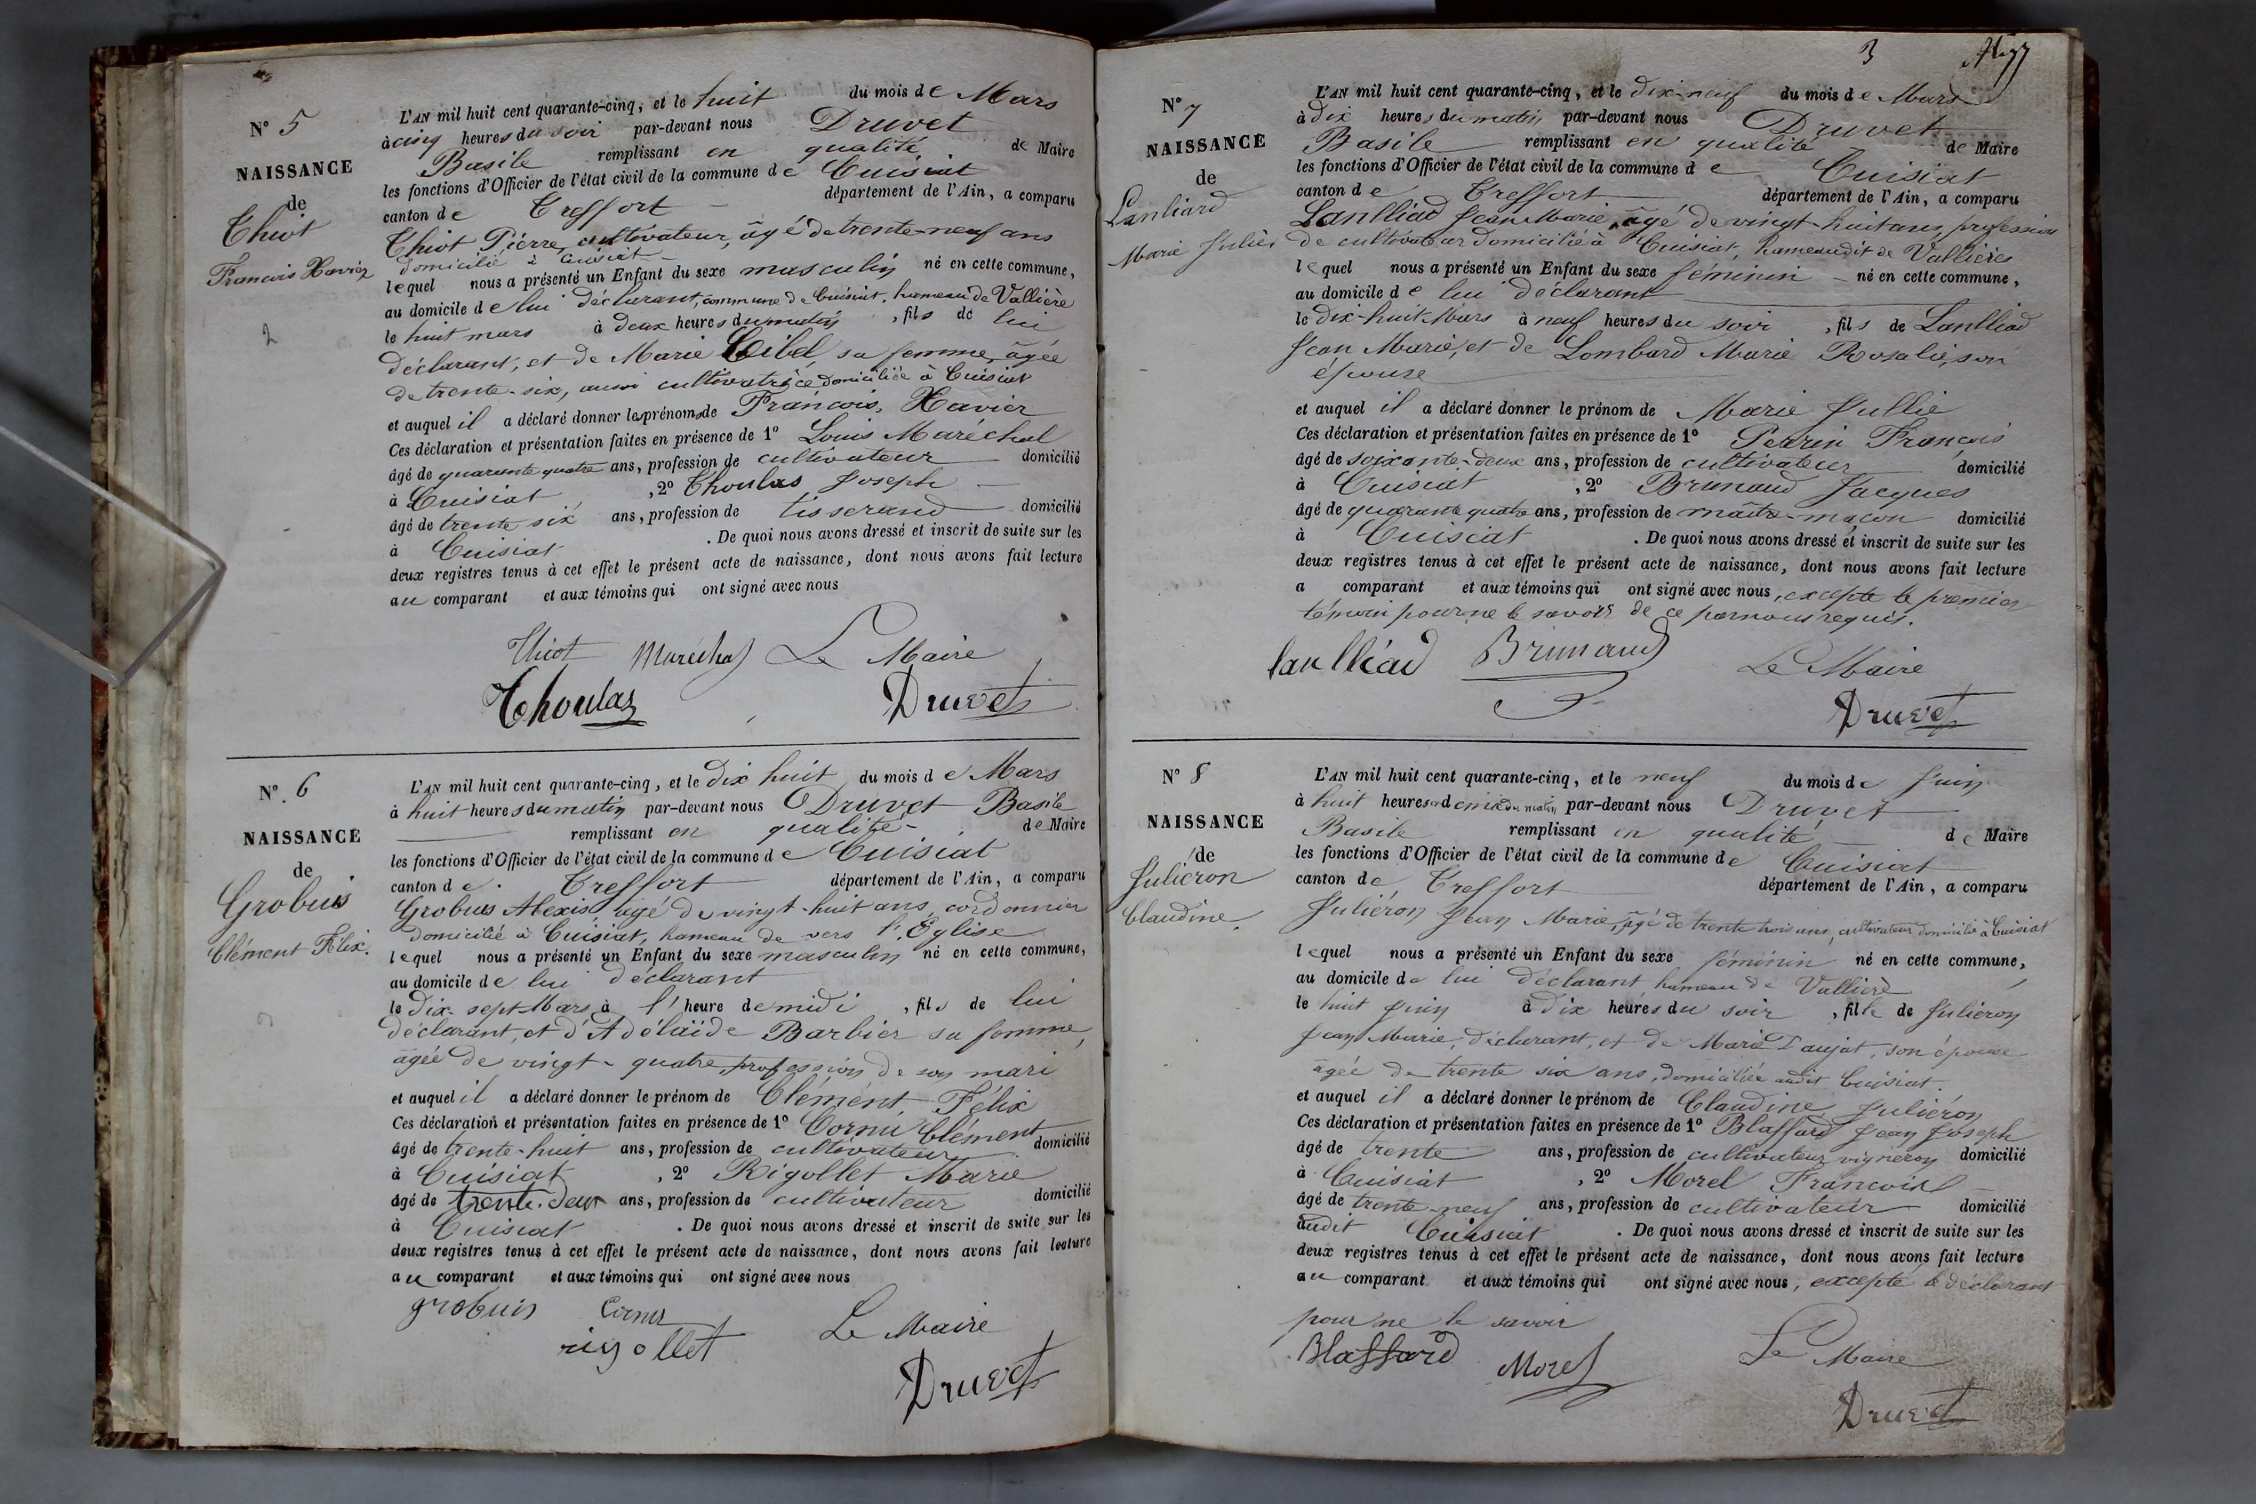 N° 5
NAISSANCE
de
Thiot
Francois Xavier
2
L'AN mil huit cent quarante-cinq, et le huit du mois de Mars
à cinq heures du soir par-devant nous Druvet
Basile remplissant en qualité de Maire
les fonctions d'Officier de l'état civil de la commune de Cuisiat
canton de Treffort département de l'Ain, a comparu
Thiot Pierre, cultivateur, âgé de trente-neuf ans
domicilié à Cuisiat
lequel nous a présenté un Enfant du sexe masculin né en cette commune,
au domicile de lui déclarant, commune de Cuisiat, hameau de Vallière
le huit mars à deux heures du matin, fils de lui
déclarant, et de Marie Cibel, sa femme, âgée
de trente-six, aussi cultivatrice domiciliée à Cuisiat
et auquel il a déclaré donner les prénoms de François, Xavier
Ces déclaration et présentation faites en présence de 1° Louis Maréchal
âgé de quarante quatre ans, profession de cultivateur domicilié
à Cuisiat, 2° Thoulas Joseph
âgé de trente six ans, profession de tisserand domicilié
à Cuisiat. De quoi nous avons dressé et inscrit de suite sur les
deux registres tenus à cet effet le présent acte de naissance, dont nous avons fait lecture
au comparant et aux témoins qui ont signé avec nous
Thiot Maréchal Le Maire
Thoulas Druvet
N°. 6
NAISSANCE
de
Grobuis
Clément Félix.
L'AN mil huit cent quarante-cinq, et le dix huit du mois de Mars
à huit heures du matin par-devant nous Druvet Basile
remplissant en qualité de Maire
les fonctions d'Officier de l'état civil de la commune de Cuisiat
canton de Treffort département de l'Ain, a comparu
Grobuis Alexis âgé de vingt-huit ans, cordonnier
domicilié à Cuisiat, hameau de vers l'Eglise
lequel nous a présenté un Enfant du sexe masculin né en cette commune,
au domicile de lui déclarant
le Dix-sept Mars à l'heure de midi, fils de lui
déclarant, et d'Adélaïde Barbier sa femme,
âgée de vingt-quatre, profession de son mari
et auquel il a déclaré donner le prénom de Clément, Félix
Ces déclaration et présentation faites en présence de 1° Cornu Clément
âgé de trente-huit ans, profession de cultivateur domicilié
à Cuisiat, 2° Rigollet Marie
âgé de trente-deux ans, profession de cultivateur domicilié
à Cuisiat. De quoi nous avons dressé et inscrit de suite sur les
deux registres tenus à cet effet le présent acte de naissance, dont nous avons fait lecture
au comparant et aux témoins qui ont signé avec nous
grobuis Cornu Le Maire
rigollet
Druvet
3
N° 7
NAISSANCE
de
Lanliard
Marie Julie
L'AN mil huit cent quarante-cinq, et le dix-neuf du mois de Mars
à dix heures du matin par-devant nous Druvet
Basile remplissant en qualité de Maire
les fonctions d'Officier de l'état civil de la commune de Cuisiat
canton de Treffort département de l'Ain, a comparu
Lanlliad Jean Marie, âgé de vingt-huit ans, profession
de cultivateur domicilié à Cuisiat, hameau dit de Vallière
lequel nous a présenté un Enfant du sexe féminin né en cette commune,
au domicile de lui déclarant
le dix-huit Mars à neuf heures du soir, fils de Lanlliad
Jean Marie, et de Lombard Marie Rosalie, son
épouse
et auquel il a déclaré donner le prénom de Marie Jullie
Ces déclaration et présentation faites en présence de 1° Perrin François
âgé de soixante-deux ans, profession de cultivateur domicilié
à Cuisiat, 2° Brunaud Jacques
âgé de quarante quatre ans, profession de maître-maçon domicilié
à Cuisiat. De quoi nous avons dressé et inscrit de suite sur les
deux registres tenus à cet effet le présent acte de naissance, dont nous avons fait lecture
a comparant et aux témoins qui ont signé avec nous, excepté le premier
témoin pour ne le savoir de ce par nous requis.
Lanlliad Brunaud Le Maire
Druvet
N° 8
NAISSANCE
de
Juliéron
Claudine.
L'AN mil huit cent quarante-cinq, et le neuf du mois de Juin
à huit heures et demie du matin par-devant nous Druvet
Basile remplissant en qualité de Maire
les fonctions d'Officier de l'état civil de la commune de Cuisiat
canton de Treffort département de l'Ain, a comparu
Juliéron Jean Marie, âgé de trente trois ans, cultivateur domicilié à Cuisiat
lequel nous a présenté un Enfant du sexe féminin né en cette commune,
au domicile de lui déclarant, hameau de Vallière
le huit Juin à dix heures du soir, fille de Juliéron
Jean Marie, déclarant, et de Marie Taujat, son épouse
âgée de trente six ans, domiciliée audit Cuisiat.
et auquel il a déclaré donner le prénom de Claudine Juliéron
Ces déclaration et présentation faites en présence de 1° Blaffard Jean Joseph
âgé de trente ans, profession de cultivateur vigneron domicilié
à Cuisiat, 2° Morel François
âgé de trente-neuf ans, profession de cultivateur domicilié
audit Cuisiat. De quoi nous avons dressé et inscrit de suite sur les
deux registres tenus à cet effet le présent acte de naissance, dont nous avons fait lecture
au comparant et aux témoins qui ont signé avec nous, excepté le déclarant
pour ne le savoir
Blaffard Morel Le Maire
Druvet